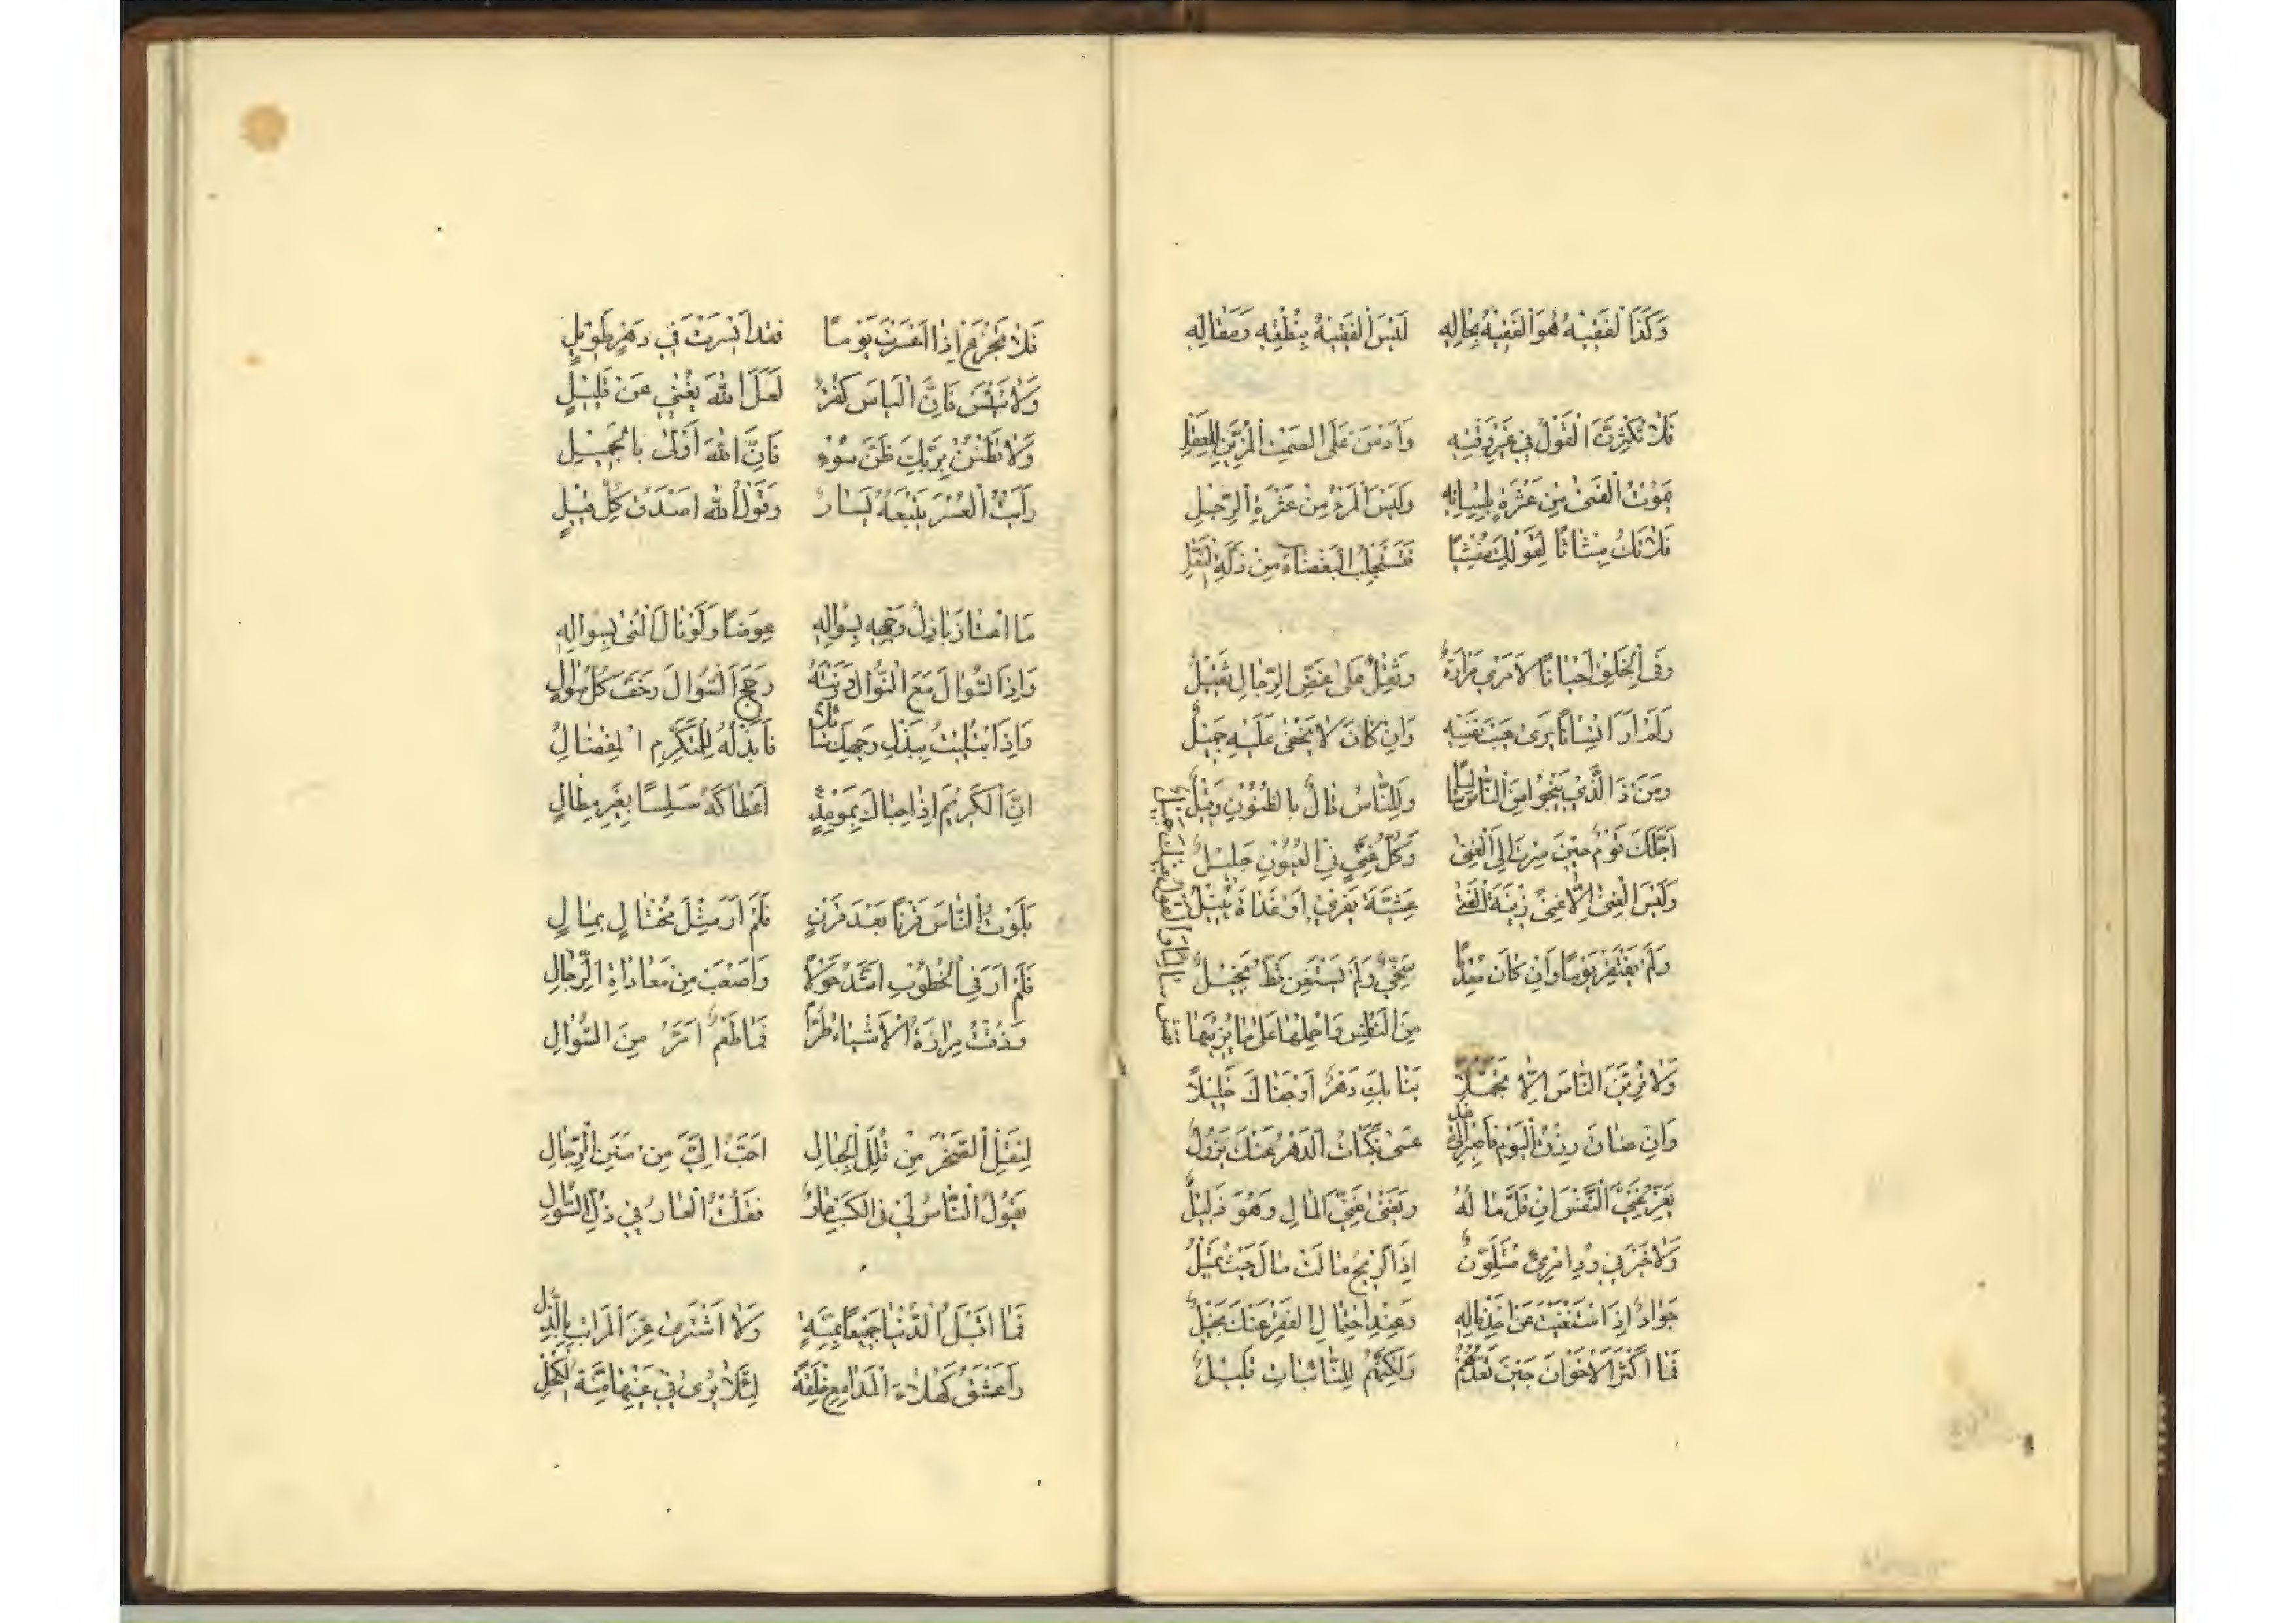 وَكَذَا الْفَقِيْهُ هُوَ الْفَقِيْهُ بِحَالِهِ لَيْسَ الْفَقِيْهُ بِنُطْقِهِ وَمَقَالِهِ
فَلَا تُكْثِرَنَّ الْقَوْلَ فِي غَيْرِ وَقْتِهِ وَأَدْمِنْ عَلَى الصَّمْتِ الْمُزَيِّنِ لِلْعَقْلِ
يَمُوْتُ الْفَتَى مِنْ عَثْرَةٍ بِلِسَانِهِ وَلَيْسَ الْمَرْءُ مِنْ عَثْرَةِ الرِّجْلِ
فَلَا تَكُ مِبْثَاثًا لِقَوْلِكَ مُفْشِيًا فَتَسْتَجْلِبَ الْبَغْضَاءَ مِنْ زَلَّةِ النَّعْلِ
وَفِي الْخَلْقِ أَحْيَانًا لَعَمْرِي مَرَارَةٌ وَثِقْلٌ عَلَى بَعْضِ الرِّجَالِ ثَقِيْلُ
وَلَمْ أَرَ إِنْسَانًا يَرَى عَيْبَ نَفْسِهِ وَإِنْ كَانَ لَا يَخْفَى عَلَيْهِ جَمِيْلُ
وَمَنْ ذَا الَّذِي يَنْجُوا مِنَ النَّاسِ سَالِمًا وَلِلنَّاسِ قَالٌ بِالظُّنُوْنِ وَقِيْلُ
أَجَلَّكَ قَوْمٌ حِيْنَ صِرْتَ إِلَى الْغِنَى وَكُلُّ غَنِيٍّ فِي الْعُيُوْنِ جَلِيْلُ
وَلَيْسَ الْغِنَى إِلَّا غِنًى زَيَّنَ الْفَتَى عَشِيَّةَ يَقْرِي أَوْ غَدَاةَ يُنِيْلُ
وَلَمْ يَفْتَقِرْ يَوْمًا وَإِنْ كَانَ مُعْدِمًا سَخِيٌّ وَلَمْ يَسْتَغْنِ قَطُّ بَخِيْلُ
صُنِ النَّفْسَ وَاحْمِلْهَا عَلَى مَا يَزِيْنُهَا تَعِشْ سَالِمًا وَالْقَوْلُ فِيْكَ جَمِيْلُ
وَلَا تُرِيَنَّ النَّاسَ إِلَّا تَجَمُّلًا نَبَا بِكَ دَهْرٌ أَوْ جَفَاكَ خَلِيْلًا
وَإِنْ ضَاقَ رِزْقُ الْيَوْمِ فَاصْبِرْ إِلَى غَدٍ عَسَى نَكَبَاتُ الدَّهْرِ عَنْكَ تَزُوْلُ
يَعِزُّ غَنِيُّ النَّفْسِ إِنْ قَلَّ مَالُهُ وَيَغْنَى غَنِيُّ الْمَالِ وَهُوَ ذَلِيْلُ
وَلَا خَيْرَ فِي وُدِّ امْرِئٍ مُتَلَوِّنٍ إِذَا الرِّيْحُ مَالَتْ مَالَ حَيْثُ تَمِيْلُ
جَوَادٌ إِذَا اسْتَغْنَيْتَ عَنْ أَخْذِ مَالِهِ وَعِنْدَ احْتِمَالِ الْفَقْرِ عَنْكَ بَخِيْلُ
فَمَا أَكْثَرَ الْإِخْوَانَ حِيْنَ تَعُدُّهُمْ وَلَكِنَّهُمْ لِلنَّائِبَاتِ قَلِيْلُ
فَلَا تَجْزَعْ إِذَا أَعْسَرْتَ يَوْمًا فَقَدْ أَيْسَرْتَ فِي دَهْرٍ طَوِيْلٍ
وَلَا تَيْئَسْ فَإِنَّ الْيَأْسَ كُفْرٌ لَعَلَّ اللهَ يُغْنِي عَنْ قَلِيْلٍ
وَلَا تَظْنُنْ بِرَبِّكَ ظَنَّ سُوْءٍ فَإِنَّ اللهَ أَوْلَى بِالْجَمِيْلِ
رَأَيْتُ الْعُسْرَ يَتْبَعُهُ يَسَارٌ وَقَوْلُ اللهِ أَصْدَقُ كُلِّ قِيْلٍ
مَا اعْتَاضَ بَاذِلُ وَجْهِهِ بِسُؤَالِهِ عِوَضًا وَلَوْ نَالَ الْمُنَى بِسُؤَالِهِ
وَإِذَا السُّؤَالُ مَعَ النَّوَالِ وَزَنْتَهُ رَجَحَ السُّؤَالُ وَخَفَّ كُلُّ نَوَالٍ
وَإِذَا ابْتُلِيْتَ بِبَذْلِ وَجْهِكَ سَائِلًا فَابْذُلْهُ لِلْمُتَكَرِّمِ الْمِفْضَالِ
إِنَّ الْكَرِيْمَ إِذَا حَبَاكَ بِمَوْعِدٍ أَعْطَاكَهُ سَلِسًا بِغَيْرِ مِطَالٍ
بَلَوْتُ النَّاسَ قَرْنًا بَعْدَ قَرْنٍ فَلَمْ أَرَ مِثْلَ مُخْتَالٍ بِمَالٍ
فَلَمْ أَرَ فِي الْخُطُوْبِ أَشَدَّ هَوْلًا وَأَصْعَبَ مِنْ مُعَادَاةِ الرِّجَالِ
وَذُقْتُ مَرَارَةَ الْأَشْيَاءِ طُرًّا فَمَا طَعْمٌ أَمَرُّ مِنَ السُّؤَالِ
لَنَقْلُ الصَّخْرِ مِنْ قُلَلِ الْجِبَالِ أَحَبُّ إِلَيَّ مِنْ مِنَنِ الرِّجَالِ
يَقُوْلُ النَّاسُ لِي فِي الْكَسْبِ عَارٌ فَقُلْتُ الْعَارُ فِي ذُلِّ السُّؤَالِ
فَمَا أَقْبَلُ الدُّنْيَا جَمِيْعًا بِمِنَّةٍ وَلَا أَشْتَرِي عِزَّ الْمَرَاتِبِ بِالذُّلِّ
وَأَعْشَقُ كَحْلَاءَ الْمَدَامِعِ خِلْقَةً لِئَلَّا يُرَى فِي عَيْنِهَا مِنَّةُ الْكُحْلِ